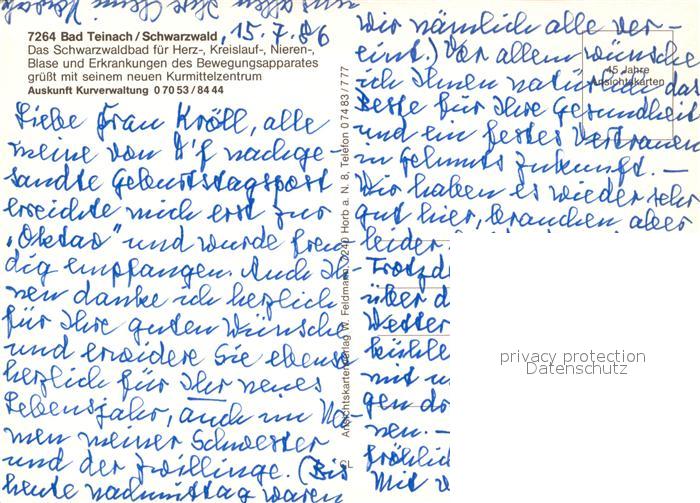 7264 Bad Teinach/Schwarzwald, 15.7.86
Das Schwarzwaldbad für Herz-, Kreislauf-, Nieren-,
Blase und Erkrankungen des Bewegungsapparates
grüßt mit seinem neuen Kurmittelzentrum
Auskunft Kurverwaltung 0 70 53 / 84 44
Liebe Frau Kröll, alle
meine von D'f nachge-
sandte Geburtstagspost
erreichte mich erst zur
„Oktav" und wurde freu-
dig empfangen. Auch Ih-
nen danke ich herzlich
für Ihre guten Wünsche
und erwidere Sie ebenso
herzlich für Ihr neues
Lebensjahr, auch im Na-
men meiner Schwester
und der Zwillinge. (Bis
heute nachmittag waren
Ansichtskartenverlag W. Feldmann, 7240 Horb a. N. 8, Telefon 07483/777
wir nämlich alle ver-
eint.) Vor allem wünsche
ich Ihnen natürlich das
Beste für Ihre Gesundheit
und ein festes Vertrauen
in Zukunft. —
Wir haben es wieder sehr
gut hier, brauchen aber
leider
Trotzd
über d
Wetter
kühle
mit u
gen do
nen. —
fröhlich
Mit v
45 Jahre
Ansichtskarten
privacy protection
Datenschutz